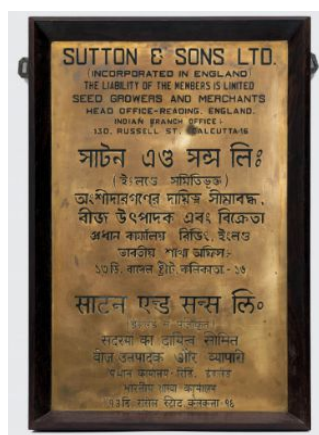 SUTTON & SONS LTD.
(INCORPORATED IN ENGLAND)
THE LIABILITY OF THE MEMBERS IS LIMITED
SEED GROWERS AND MERCHANTS
HEAD OFFICE-READING, ENGLAND.
INDIAN BRANCH OFFICE:
13D, RUSSELL ST. CALCUTTA-16
সাটন এণ্ড সন্স লিঃ
(ইংলণ্ডে সমিতিভুক্ত)
অংশীদারগণের দায়িত্ব সীমাবদ্ধ,
বীজ উৎপাদক এবং বিক্রেতা
প্রধান কার্যালয় রিডিং, ইংলণ্ড
ভারতীয় শাখা অফিস:
১৩ডি, রাসেল ষ্ট্রীট, কলিকাতা - ১৬
साटन एन्ड सन्स लि०
सदस्यों का दायित्व सीमित
बीज उत्पादक और व्यापारी
प्रधान कार्यालय रीडिंग, इंगलैंड
भारतीय शाखा कार्यालय
१३डि, रासेल स्ट्रीट, कलकत्ता-१६